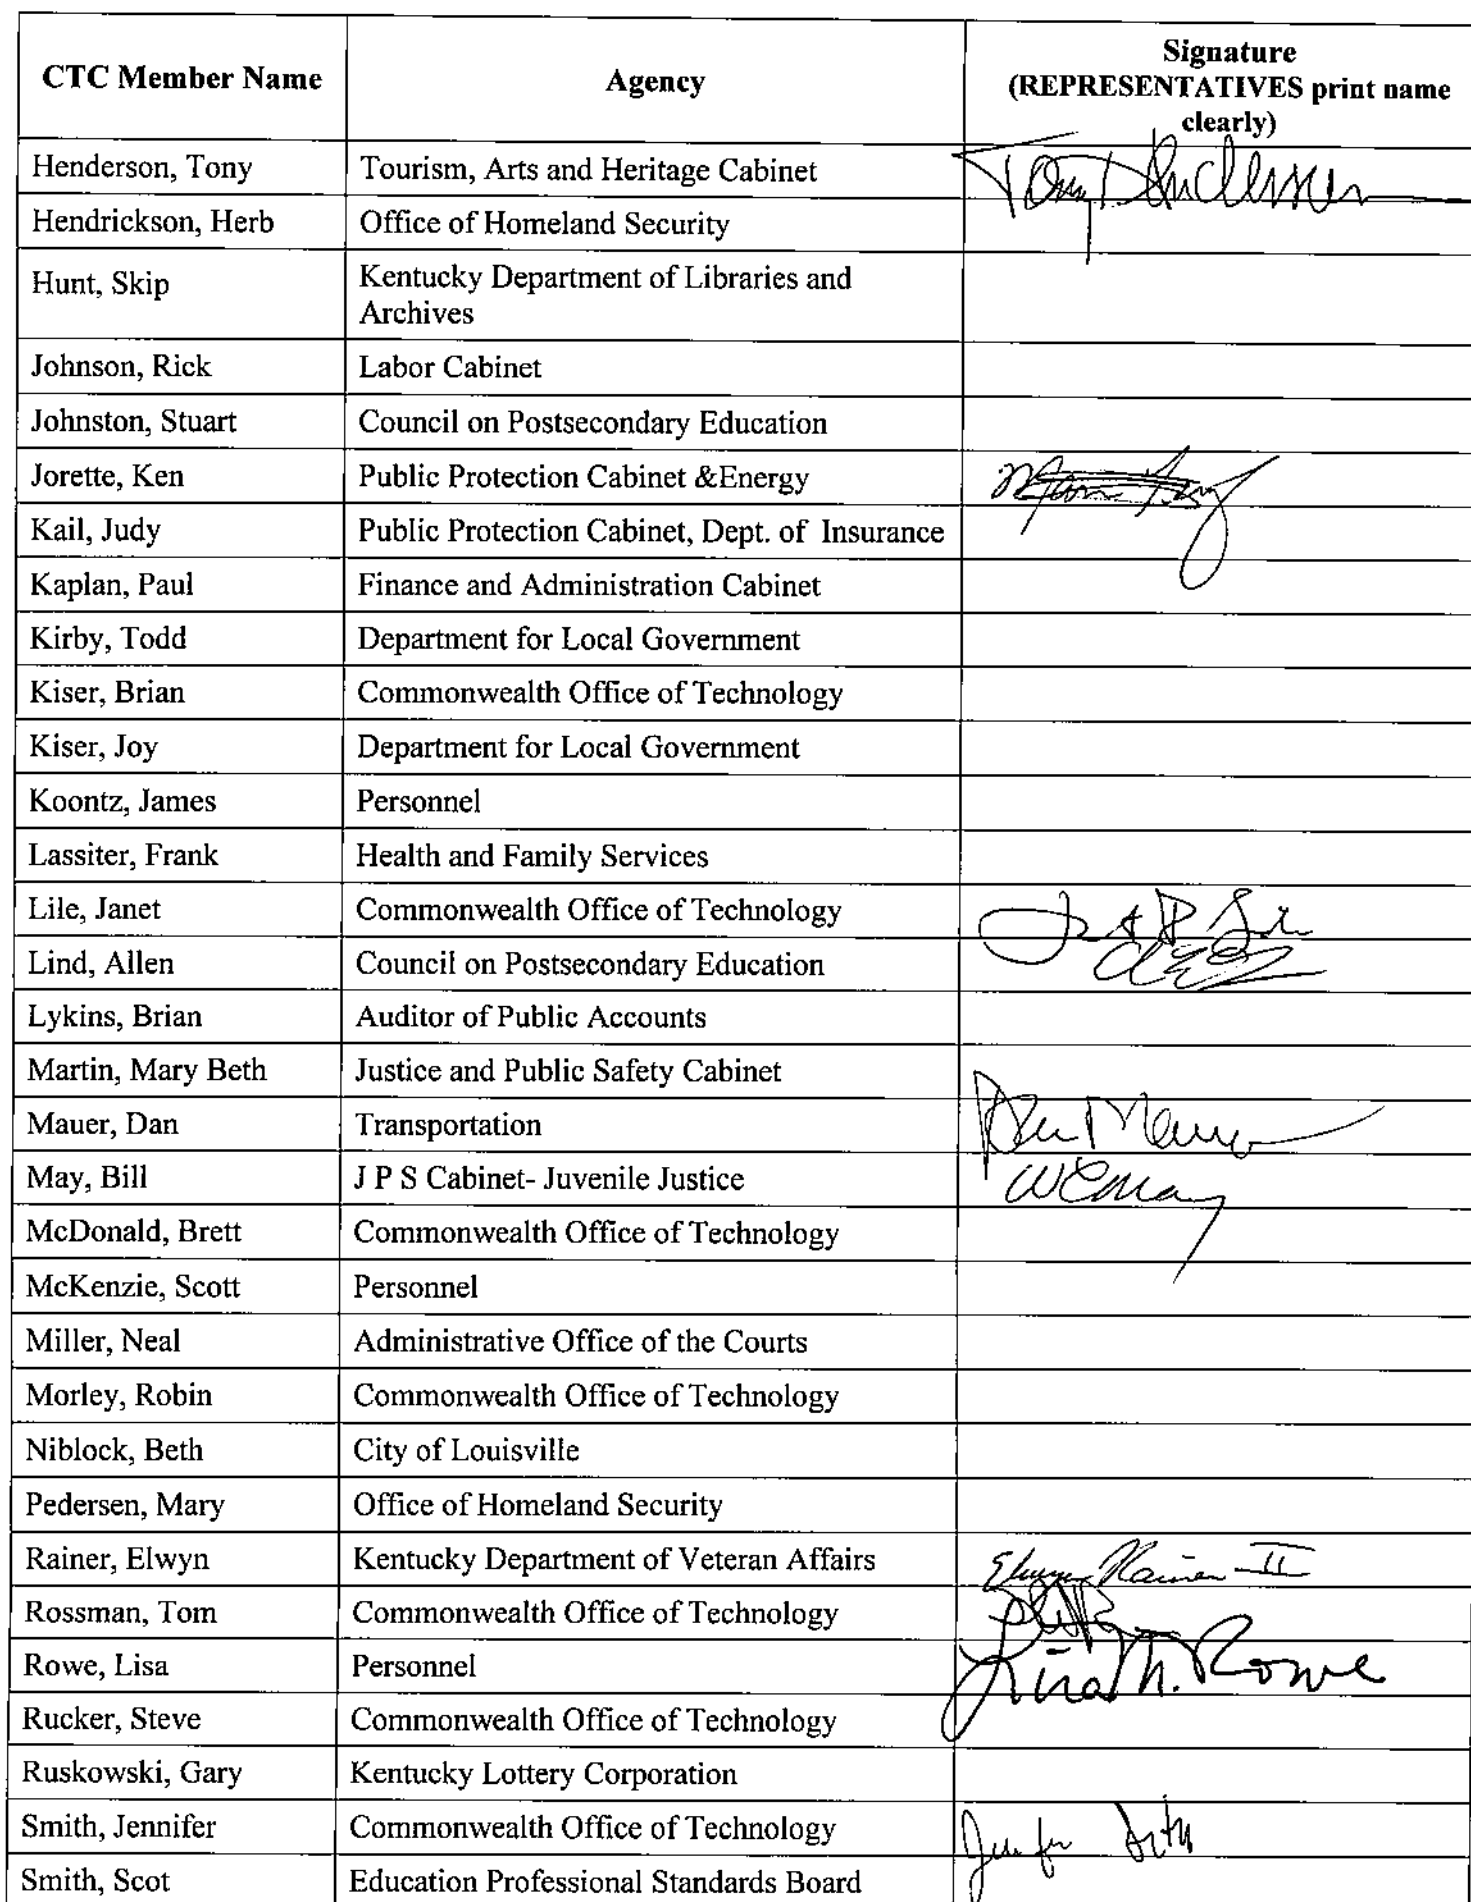 CTC Member Name Agency Signature
(REPRESENTATIVES print name
clearly)
Henderson, Tony Tourism, Arts and Heritage Cabinet Tony Henderson
Hendrickson, Herb Office of Homeland Security
Hunt, Skip Kentucky Department of Libraries and
Archives
Johnson, Rick Labor Cabinet
Johnston, Stuart Council on Postsecondary Education
Jorette, Ken Public Protection Cabinet &Energy
Kail, Judy Public Protection Cabinet, Dept. of Insurance
Kaplan, Paul Finance and Administration Cabinet
Kirby, Todd Department for Local Government
Kiser, Brian Commonwealth Office of Technology
Kiser, Joy Department for Local Government
Koontz, James Personnel
Lassiter, Frank Health and Family Services
Lile, Janet Commonwealth Office of Technology
Lind, Allen Council on Postsecondary Education
Lykins, Brian Auditor of Public Accounts
Martin, Mary Beth Justice and Public Safety Cabinet
Mauer, Dan Transportation Dan Mauer
May, Bill J P S Cabinet- Juvenile Justice WEMay
McDonald, Brett Commonwealth Office of Technology
McKenzie, Scott Personnel
Miller, Neal Administrative Office of the Courts
Morley, Robin Commonwealth Office of Technology
Niblock, Beth City of Louisville
Pedersen, Mary Office of Homeland Security
Rainer, Elwyn Kentucky Department of Veteran Affairs Elwyn Rainer II
Rossman, Tom Commonwealth Office of Technology
Rowe, Lisa Personnel Lisa M. Rowe
Rucker, Steve Commonwealth Office of Technology
Ruskowski, Gary Kentucky Lottery Corporation
Smith, Jennifer Commonwealth Office of Technology Jennifer Smith
Smith, Scot Education Professional Standards Board